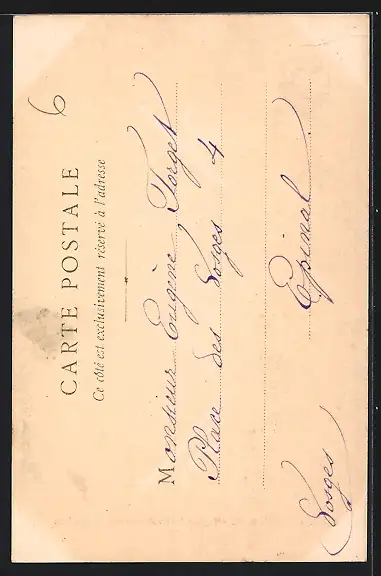 6
CARTE POSTALE
Ce côté est exclusivement réservé à l'adresse
Monsieur Eugène Forget
Place des Vosges 4
Epinal
Vosges